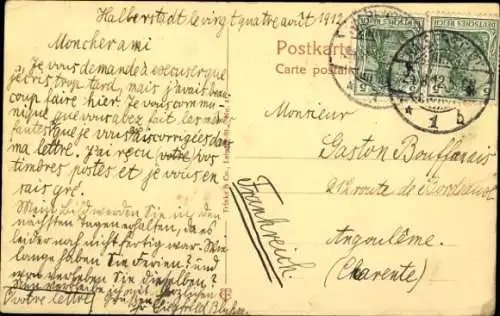 Halberstadt le vingt quatre août 1912.
Mon cher ami
Je vous demande à excuser que
j'écris trop tard, mais j'avait beau-
coup faire hier. Je vous commu-
nique que vous abez fait les mêmes
fautes que je vous ai corrigées dans
ma lettre. J'ai reçu (votre) vos
timbres postes et je vous en
sais gré.
Mein Bild werden Sie in den
nächsten Tagen erhalten, da es
leider noch nicht fertig war. Wie
lange haben Sie Ferien? und
wo verleben Sie dieselben?
Grüßen
Siegfried
Postkarte
Carte postale
DEUTSCHES REICH
DEUTSCHES REICH
5
5
* 1 b
Monsieur
Gaston Bouffanais
212 route de Bordeaux
Angoulême
(Charente)
Frankreich